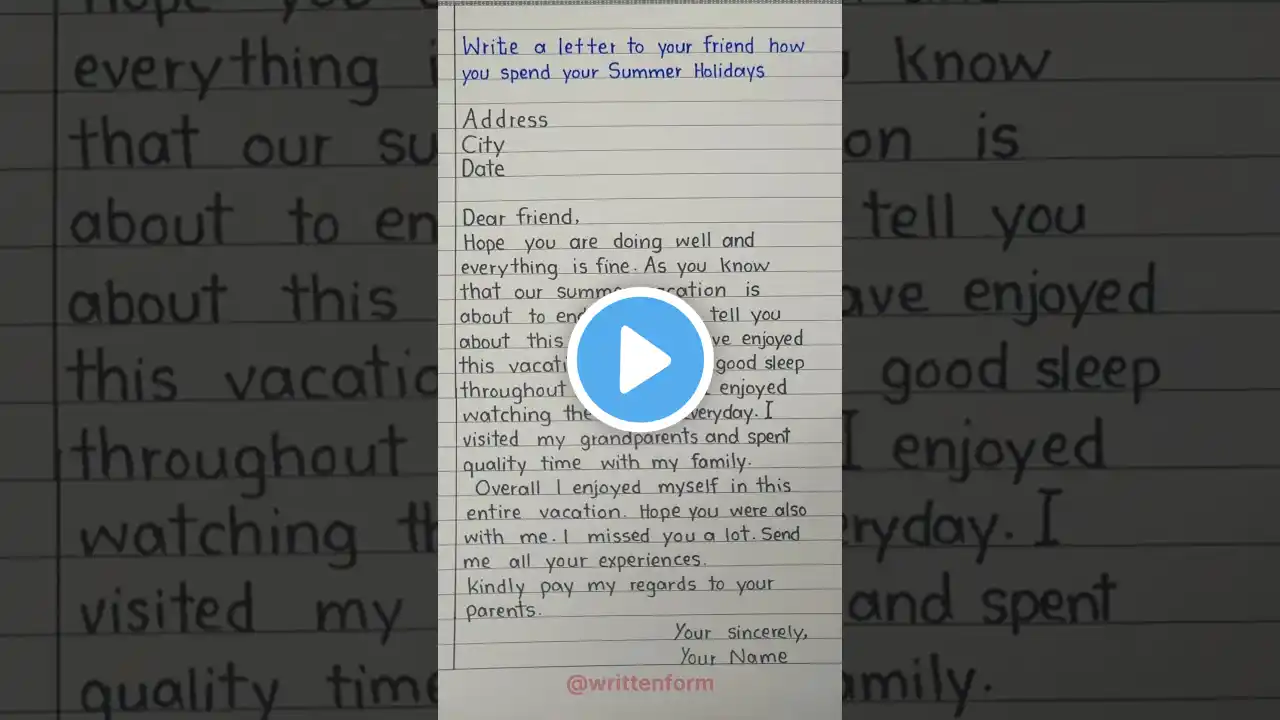 Write a letter to your friend how
you spend your Summer Holidays
Address
City
Date
Dear friend,
Hope you are doing well and
everything is fine. As you know
that our summer vacation is
about to end tell you
about this have enjoyed
this vacation good sleep
throughout I enjoyed
watching the everyday. I
visited my grandparents and spent
quality time with my family.
Overall I enjoyed myself in this
entire vacation. Hope you were also
with me. I missed you a lot. Send
me all your experiences.
Kindly pay my regards to your
parents.
Your sincerely,
Your Name
@writtenform